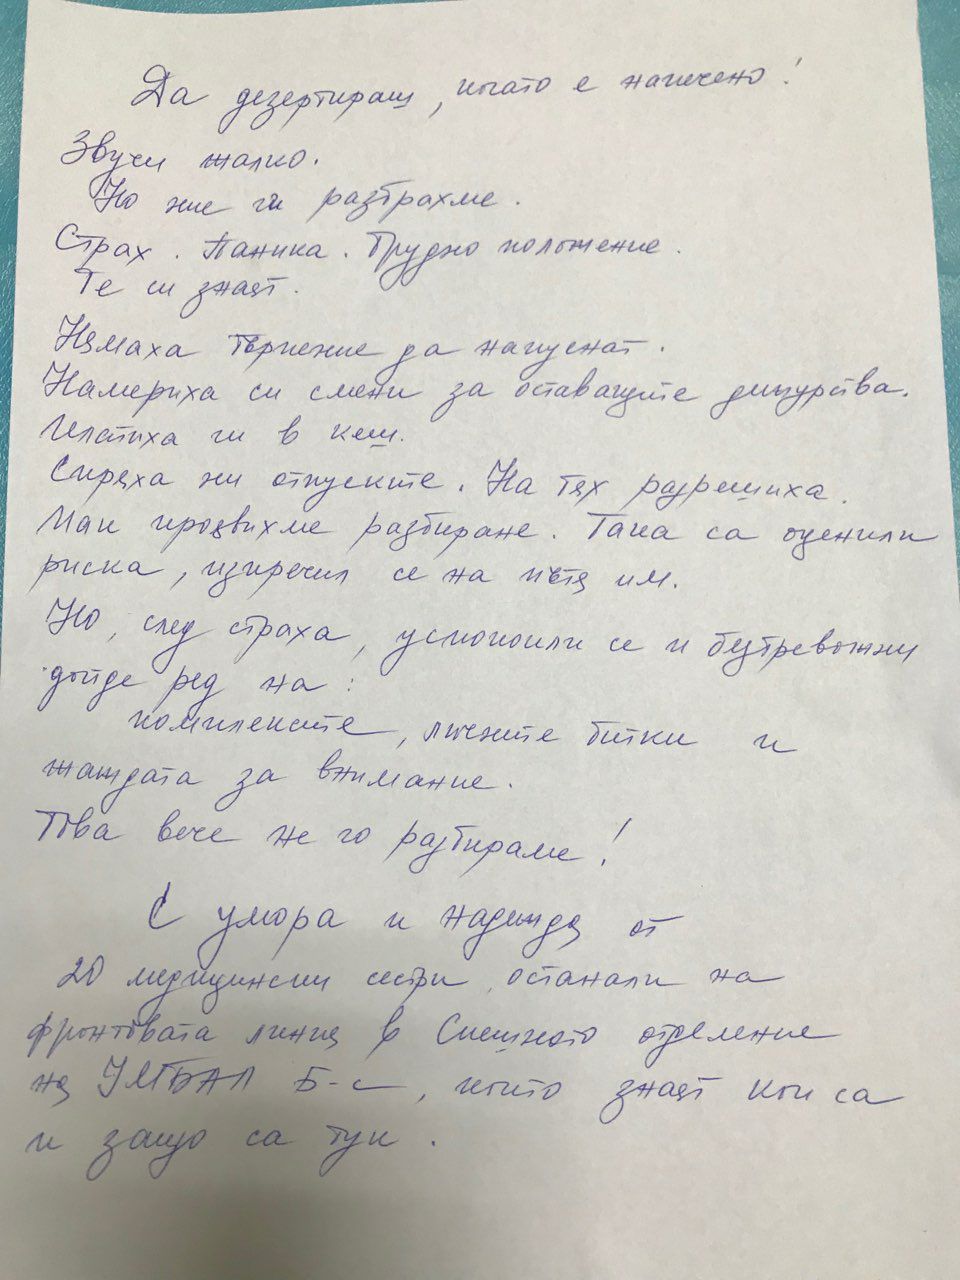 Да дезертираш, когато е напечено!
Звучи жалко.
Но ние ги разбрахме.
Страх. Паника. Трудно положение.
Те си знаят.
Нямаха търпение да напуснат.
Намериха си смени за оставащите дежурства.
Платиха ги в кеш.
Спряха ни отпуските. На тях разрешиха.
Пак проявихме разбиране. Така са оценили
риска, изпречил се на пътя им.
Но, след страха, успокоили се и безтревожни
дойде ред на:
комплексите, личните битки и
жаждата за внимание.
Това вече не го разбираме!
С умора и надежда от
20 медицински сестри, останали на
фронтовата линия в Спешното отделение
на УМБАЛ Б-с, които знаят кои са
и защо са тук.